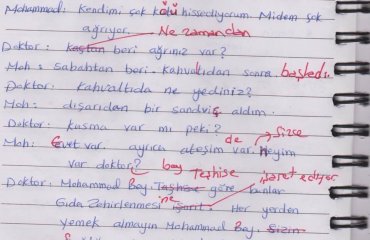 Mohammad: Kendimi çok kötü hissediyorum. Midem çok
ağrıyor. Ne zamandan
Doktor: Kaçtan beri ağrınız var?
Moh: sabahtan beri. Kahvaltıdan sonra başladı
Doktor: Kahvaltıda ne yediniz?
Moh: dışarıdan bir sandviç aldım.
Doktor: Kusma var mı peki?
Moh: Evet var. ayrıca de ateşim var. sizce Neyim
var doktor? bey Teşhise işaret ediyor.
Doktor: Mohammad Bey. Teşhise göre bunlar
Gıda Zehirlenmesi 'ne işarit. Her yerden
yemek almayın Mohammad Bey. Sizin